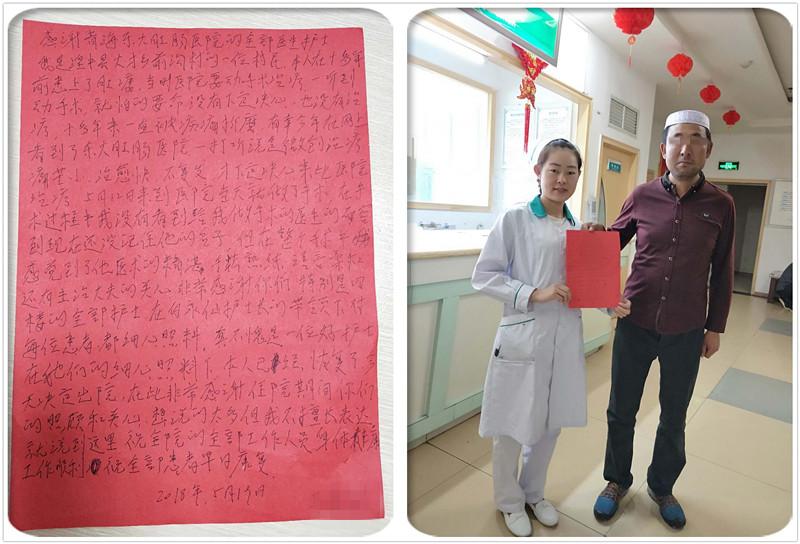 感谢青海东大肛肠医院的全部医生护士
我是湟中县大才乡前沟村的一位村民 本人在十多年
前患上了肛瘘 当时医院要动手术治疗 一听到
动手术 就怕的要命 没有下定决心 也没有治
疗 十多年来一直被病痛折磨 有幸今年在网上
看到了东大肛肠医院 一打听说是微创治疗
痛苦小 治愈快 不复发 打下决心来此医院
治疗 5月12日来到医院当天就做了手术 在手
术过程中我没有看到给我做手术医生的面容
到现在还没记住他的名字 但在整个手术中
感觉到了他医术的精湛 手法熟练
还有主治大夫的关心 非常感谢你们 特别是四
楼的全部护士 在何永仙护士长的带领下 对
每位患者都细心照料 真不愧是一位好护士
在他们的细心照料下 本人已经恢复了 今
天决定出院 在此非常感谢住院期间你们
的照顾和关心 想说的太多但我不擅长表达
就说到这里 祝全院的全部工作人员身体健康
工作顺利 祝全部患者早日康复
2018年.5月19日